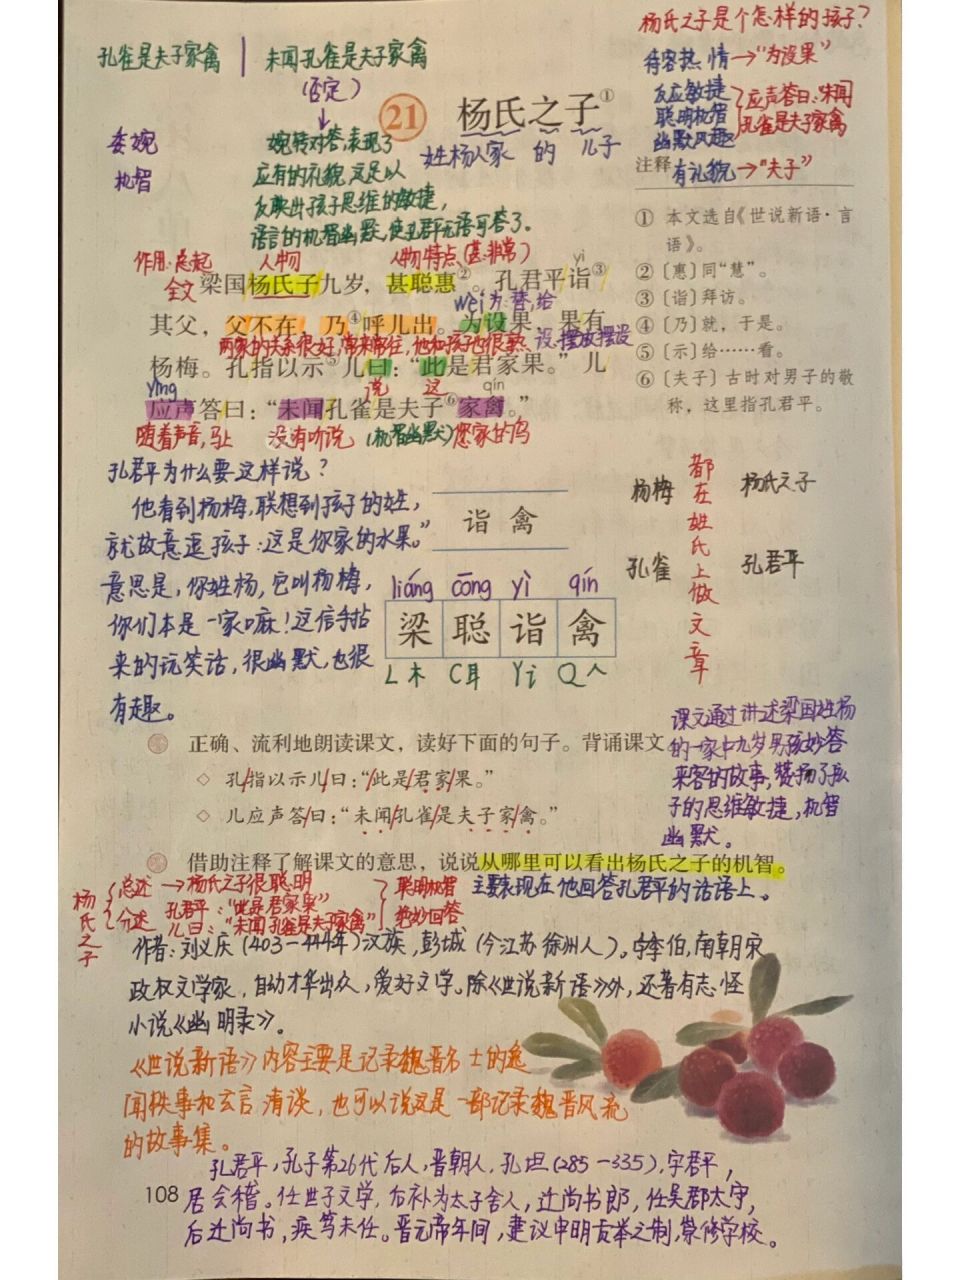 孔雀是夫子家禽 | 未闻孔雀是夫子家禽
(否定)
委婉
机智
婉转对答,表现了
应有的礼貌,这足以
反映出孩子思维的敏捷,
语言的机智幽默,使孔君平无语可答了。
21 杨氏之子①
姓杨人家 的 儿子
杨氏之子是个怎样的孩子?
待客热情→“为设果”
反应敏捷
聪明机智
幽默风趣
应声答曰:“未闻
孔雀是夫子家禽
有礼貌→“夫子”
注释
① 本文选自《世说新语·言
语》。
② 〔惠〕同“慧”。
③ 〔诣〕拜访。
④ 〔乃〕就,于是。
⑤ 〔示〕给……看。
⑥ 〔夫子〕古时对男子的敬
称,这里指孔君平。
作用:总起 人物 人物特点(甚:非常) yì
全文
梁国杨氏子九岁,甚聪惠②。孔君平诣③
wèi 为:替,给
其父,父不在,乃④呼儿出。为设果,果有
两家的关系很好,常来常往,他和孩子也很熟 设:摆放摆设
杨梅。孔指以示⑤儿曰:“此是君家果。”儿
yīng 说 这 qín
应声答曰:“未闻孔雀是夫子⑥家禽。”
随着声音,马上 没有听说 (机智幽默) 您家的鸟
孔君平为什么要这样说?
他看到杨梅,联想到孩子的姓,
就故意逗孩子:这是你家的水果。”
意思是,你姓杨,它叫杨梅,
你们本是一家嘛!这信手拈
来的玩笑话,很幽默,也很
有趣。
诣 禽
liáng cōng yì qín
梁 聪 诣 禽
L木 C耳 Yi Q人
杨梅 杨氏之子
孔雀 孔君平
都在姓氏上做文章
正确、流利地朗读课文,读好下面的句子。背诵课文
◇ 孔/指以示儿/曰:“/此是/君家/果。”
◇ 儿应声答/曰:“未闻/孔雀/是夫子家/禽。”
课文通过讲述梁国姓杨
的一家中九岁男孩妙答
来客的故事,赞扬了孩
子的思维敏捷,机智
幽默。
借助注释了解课文的意思,说说从哪里可以看出杨氏之子的机智。
主要表现在他回答孔君平的话语上。
杨氏之子
总述→杨氏之子很聪明
分述 孔君平:“此是君家果”
儿曰:“未闻孔雀是夫子家禽”
聪明机智
绝妙回答
作者:刘义庆(403—444年)汉族,彭城(今江苏徐州人)。字季伯,南朝宋
政权文学家,自幼才华出众,爱好文学。除《世说新语》外,还著有志怪
小说《幽明录》。
《世说新语》内容主要是记录魏晋名士的逸
闻轶事和玄言清谈,也可以说这是一部记录魏晋风流
的故事集。
孔君平,孔子第26代后人,晋朝人,孔坦(285—335),字君平,
居会稽。任世子文学,后补为太子舍人,迁尚书郎,任吴郡太守,
后迁尚书,疾笃未任。晋元帝年间,建议申明贡举之制,崇修学校。
108